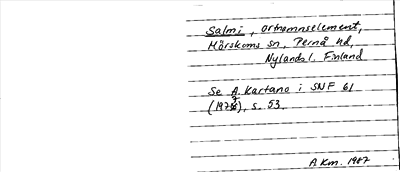 Salmi, ortnamnselement,
Mörskoms sn, Pernå hd,
Nylands l. Finland
Se A. Kartano i SNF 61
s. 53.
A Km. 1987